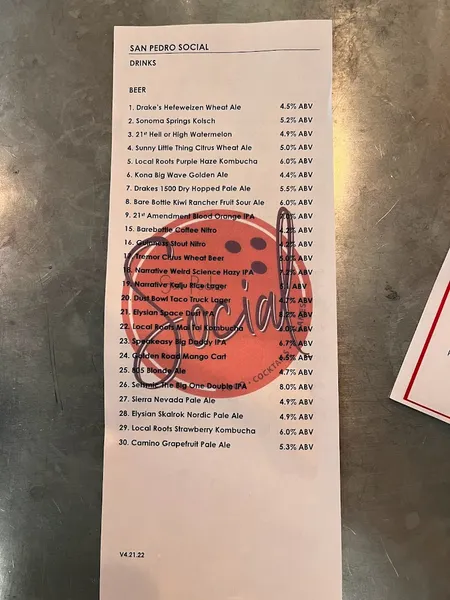 SAN PEDRO SOCIAL
DRINKS
BEER
1. Drake's Hefeweizen Wheat Ale 4.5% ABV
2. Sonoma Springs Kolsch 5.2% ABV
3. 21st Hell or High Watermelon 4.9% ABV
4. Sunny Little Thing Citrus Wheat Ale 5.0% ABV
5. Local Roots Purple Haze Kombucha 6.0% ABV
6. Kona Big Wave Golden Ale 4.4% ABV
7. Drakes 1500 Dry Hopped Pale Ale 5.5% ABV
8. Bare Bottle Kiwi Rancher Fruit Sour Ale 6.0% ABV
9. 21st Amendment Blood Orange IPA ABV
15. Barebottle Coffee Nitro 4.2% ABV
16. Guinness Stout Nitro 4.2% ABV
17. Tremor Citrus Wheat Beer 5.0% ABV
18. Narrative Weird Science Hazy IPA 7.2% ABV
19. Narrative Kaiju Rice Lager ABV
20. Dust Bowl Taco Truck Lager ABV
21. Elysian Space Dust IPA ABV
22. Local Roots Mai Tai Kombucha ABV
23. Speakeasy Big Daddy IPA 6.7% ABV
24. Golden Road Mango Cart ABV
25. 805 Blonde Ale 4.7% ABV
26. Seismic The Big One Double IPA 8.0% ABV
27. Sierra Nevada Pale Ale 4.9% ABV
28. Elysian Skalrok Nordic Pale Ale 4.9% ABV
29. Local Roots Strawberry Kombucha 6.0% ABV
30. Camino Grapefruit Pale Ale 5.3% ABV
Social
COCKTAILS
V4.21.22